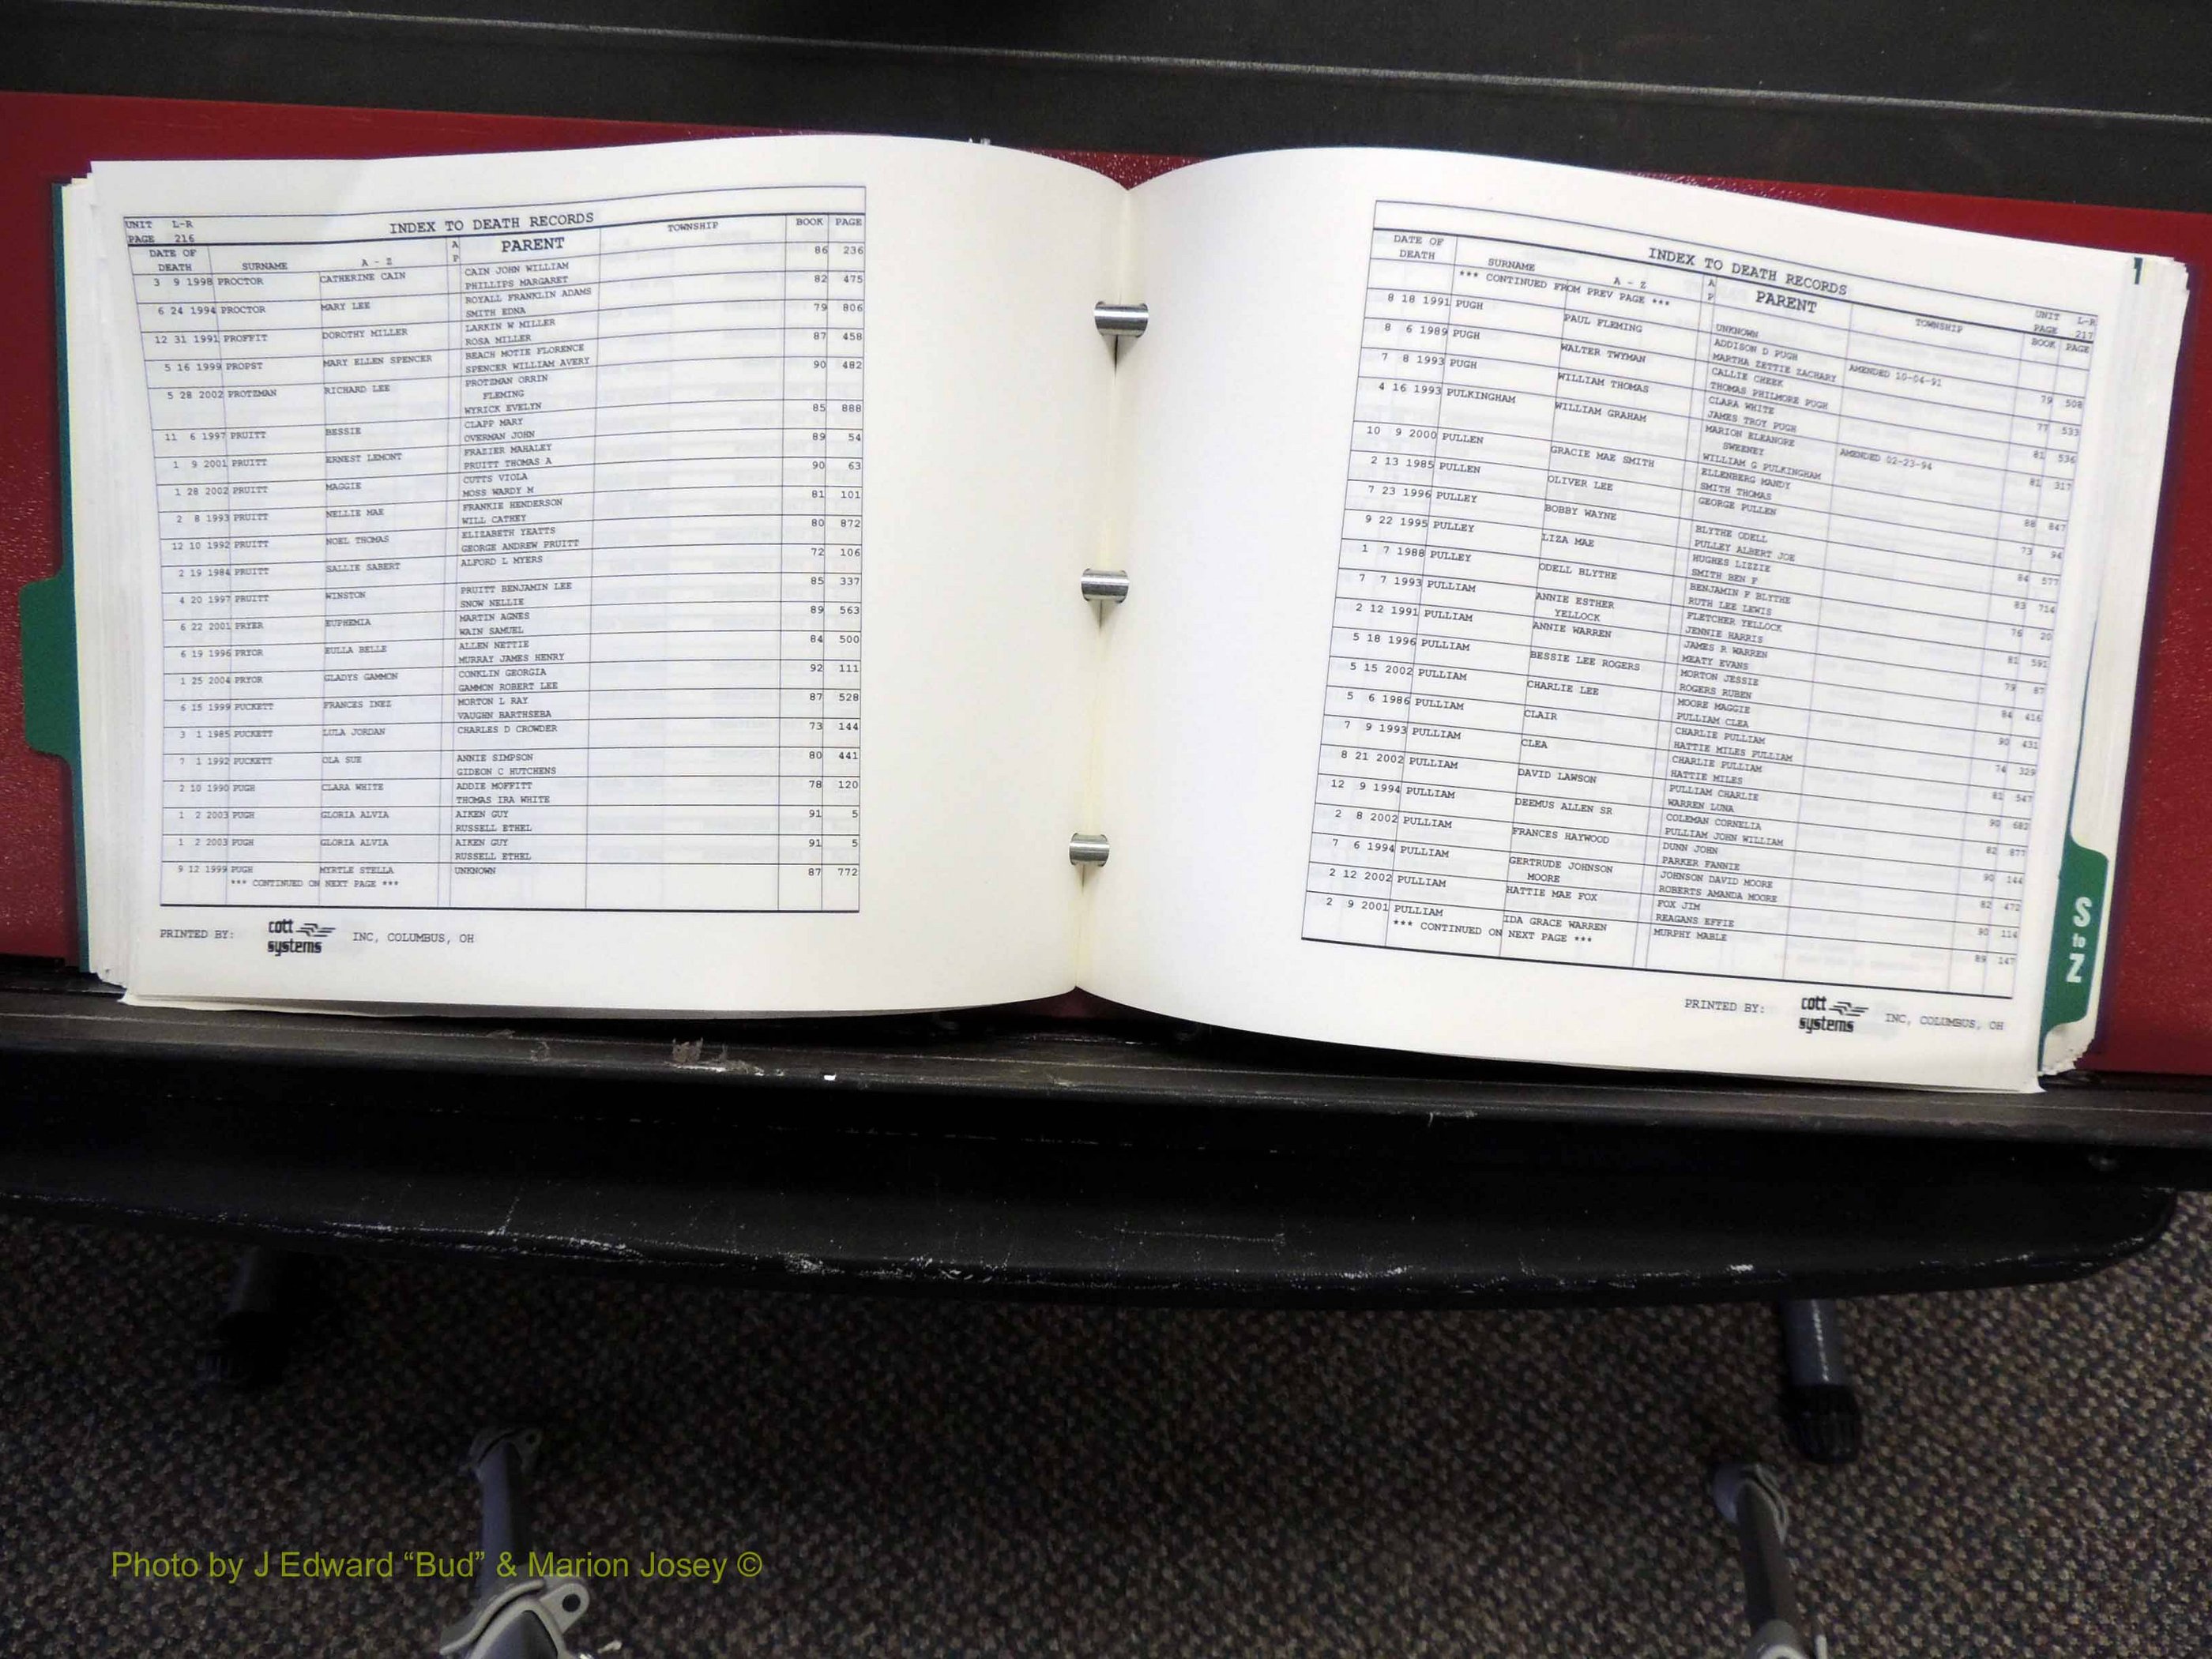 UNIT L-R
PAGE 216
INDEX TO DEATH RECORDS
DATE OF DEATH SURNAME A - Z AP PARENT TOWNSHIP BOOK PAGE
3 9 1998 PROCTOR CATHERINE CAIN CAIN JOHN WILLIAM 86 236
PHILLIPS MARGARET
6 24 1994 PROCTOR MARY LEE ROYALL FRANKLIN ADAMS 82 475
SMITH EDNA
12 31 1991 PROFFIT DOROTHY MILLER LARKIN W MILLER 79 806
ROSA MILLER
5 16 1999 PROPST MARY ELLEN SPENCER BEACH MOTIE FLORENCE 87 458
SPENCER WILLIAM AVERY
5 28 2002 PROTZMAN RICHARD LEE PROTZMAN ORRIN 90 482
FLEMING
WYRICK EVELYN
11 6 1997 PRUITT BESSIE CLAPP MARY 85 888
OVERMAN JOHN
1 9 2001 PRUITT ERNEST LEMONT FRAZIER MAHALEY 89 54
PRUITT THOMAS A
1 28 2002 PRUITT MAGGIE CUTTS VIOLA 90 63
MOSS WARDY M
2 8 1993 PRUITT NELLIE MAE FRANKIE HENDERSON 81 101
WILL CATHEY
12 10 1992 PRUITT NOEL THOMAS ELIZABETH YEATTS 80 872
GEORGE ANDREW PRUITT
2 19 1984 PRUITT SALLIE SABERT ALFORD L MYERS 72 106
4 20 1997 PRUITT WINSTON PRUITT BENJAMIN LEE 85 337
SNOW NELLIE
6 22 2001 PRYER EUPHEMIA MARTIN AGNES 89 563
WAIN SAMUEL
6 19 1996 PRYOR EULLA BELLE ALLEN NETTIE 84 500
MURRAY JAMES HENRY
1 25 2004 PRYOR GLADYS GAMMON CONKLIN GEORGIA 92 111
GAMMON ROBERT LEE
6 15 1999 PUCKETT FRANCES INEZ MORTON L RAY 87 528
VAUGHN BARTHSEBA
3 1 1985 PUCKETT LULA JORDAN CHARLES D CROWDER 73 144
7 1 1992 PUCKETT OLA SUE ANNIE SIMPSON 80 441
GIDEON C HUTCHENS
2 10 1990 PUGH CLARA WHITE ADDIE MOFFITT 78 120
THOMAS IRA WHITE
1 2 2003 PUGH GLORIA ALVIA AIKEN GUY 91 5
RUSSELL ETHEL
1 2 2003 PUGH GLORIA ALVIA AIKEN GUY 91 5
RUSSELL ETHEL
9 12 1999 PUGH MYRTLE STELLA UNKNOWN 87 772
*** CONTINUED ON NEXT PAGE ***
PRINTED BY: cott systems INC, COLUMBUS, OH
INDEX TO DEATH RECORDS
UNIT L-R
PAGE 217
DATE OF DEATH SURNAME A - Z AP PARENT TOWNSHIP BOOK PAGE
*** CONTINUED FROM PREV PAGE ***
UNKNOWN
8 18 1991 PUGH PAUL FLEMING ADDISON D PUGH AMENDED 10-04-91 79 508
MARTHA ZETTIE ZACHARY
8 6 1989 PUGH WALTER TWYMAN CALLIE CHEEK 77 533
THOMAS PHILMORE PUGH
7 8 1993 PUGH WILLIAM THOMAS CLARA WHITE 81 536
JAMES TROY PUGH
4 16 1993 PULKINGHAM WILLIAM GRAHAM MARION ELEANORE AMENDED 02-23-94 81 317
SWEENEY
WILLIAM G PULKINGHAM
10 9 2000 PULLEN GRACIE MAE SMITH ELLENBERG MANDY 88 847
SMITH THOMAS
2 13 1985 PULLEN OLIVER LEE GEORGE PULLEN 73 94
7 23 1996 PULLEY BOBBY WAYNE BLYTHE ODELL 84 577
PULLEY ALBERT JOE
9 22 1995 PULLEY LIZA MAE HUGHES LIZZIE 83 714
SMITH BEN F
1 7 1988 PULLEY ODELL BLYTHE BENJAMIN F BLYTHE 76 20
RUTH LEE LEWIS
7 7 1993 PULLIAM ANNIE ESTHER FLETCHER YELLOCK 81 591
YELLOCK JENNIE HARRIS
2 12 1991 PULLIAM ANNIE WARREN JAMES R WARREN 79 87
MEATY EVANS
5 18 1996 PULLIAM BESSIE LEE ROGERS MORTON JESSIE 84 416
ROGERS RUBEN
5 15 2002 PULLIAM CHARLIE LEE MOORE MAGGIE 90 431
PULLIAM CLEA
5 6 1986 PULLIAM CLAIR CHARLIE PULLIAM 74 329
HATTIE MILES PULLIAM
7 9 1993 PULLIAM CLEA CHARLIE PULLIAM 81 547
HATTIE MILES
8 21 2002 PULLIAM DAVID LAWSON PULLIAM CHARLIE 90 682
WARREN LUNA
12 9 1994 PULLIAM DEEMUS ALLEN SR COLEMAN CORNELIA 82 877
PULLIAM JOHN WILLIAM
2 8 2002 PULLIAM FRANCES HAYWOOD DUNN JOHN 90 144
PARKER FANNIE
7 6 1994 PULLIAM GERTRUDE JOHNSON JOHNSON DAVID MOORE 82 472
MOORE ROBERTS AMANDA MOORE
2 12 2002 PULLIAM HATTIE MAE FOX FOX JIM 90 114
REAGANS EFFIE
2 9 2001 PULLIAM IDA GRACE WARREN MURPHY MABLE 89 147
*** CONTINUED ON NEXT PAGE ***
PRINTED BY: cott systems INC, COLUMBUS, OH
S to Z
Photo by J Edward “Bud” & Marion Josey ©